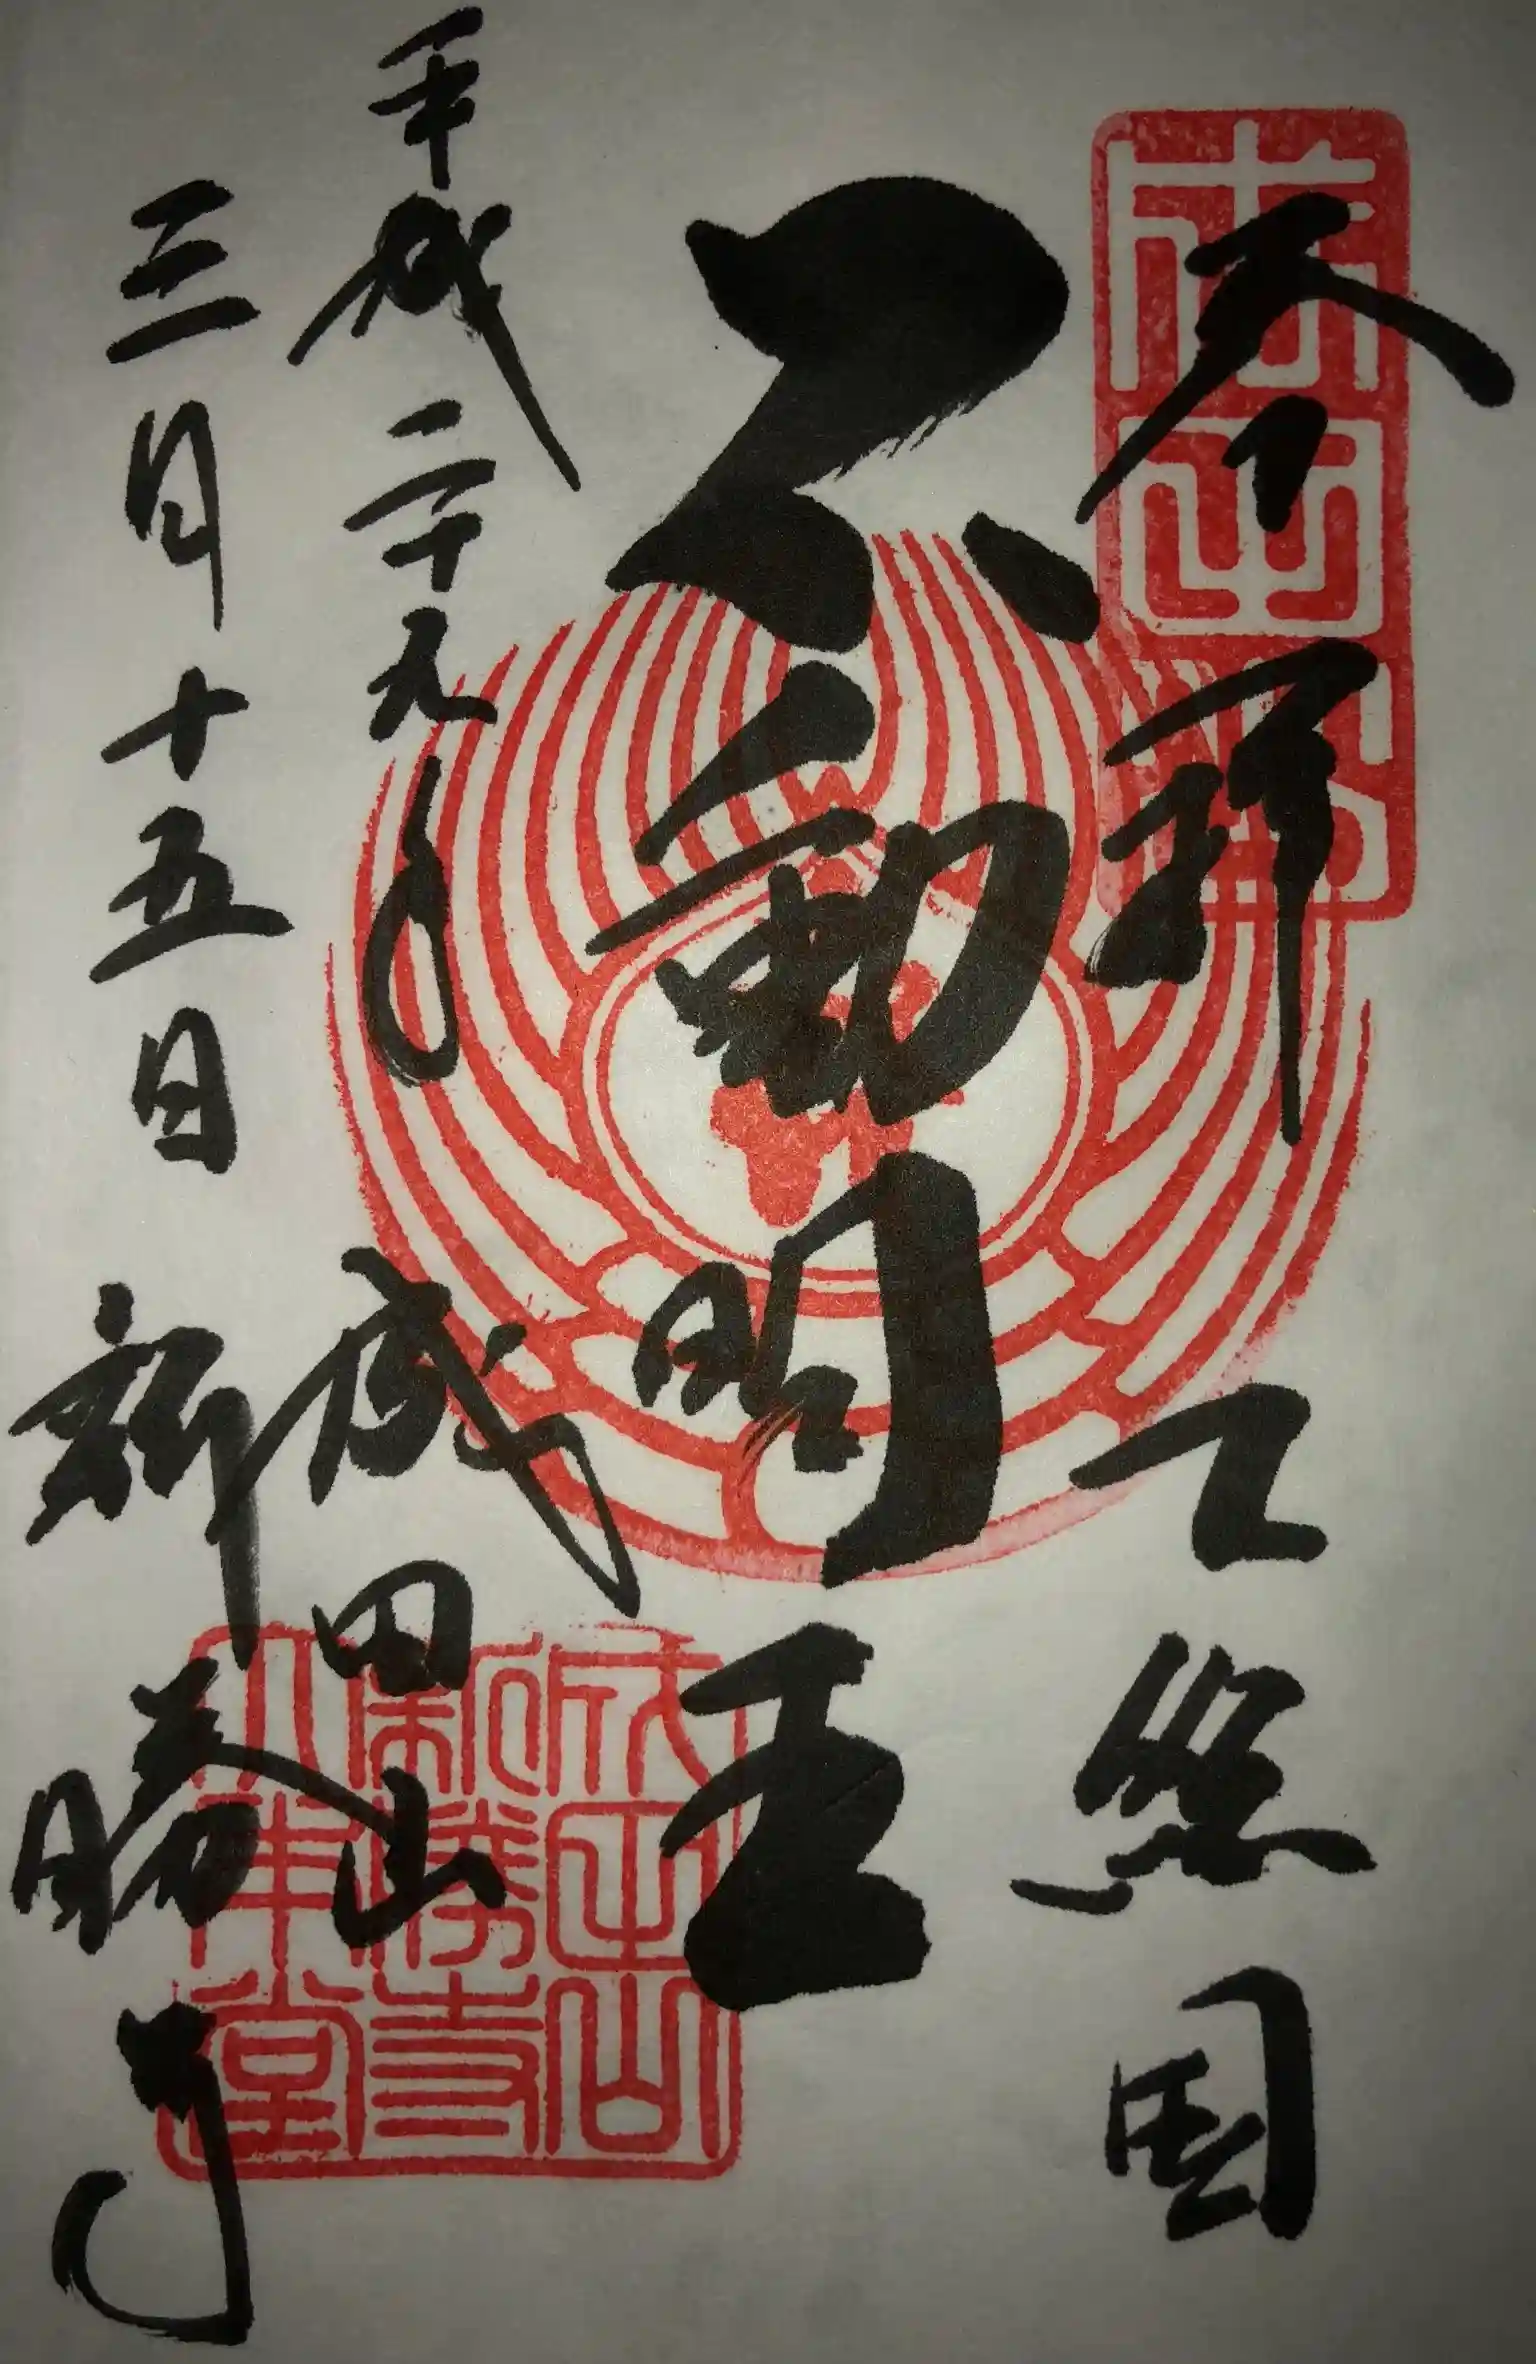 奉拝 下総国
不動明王
平成二十九年 成田山
三月十五日 新勝寺
成田山
新勝寺
大本堂